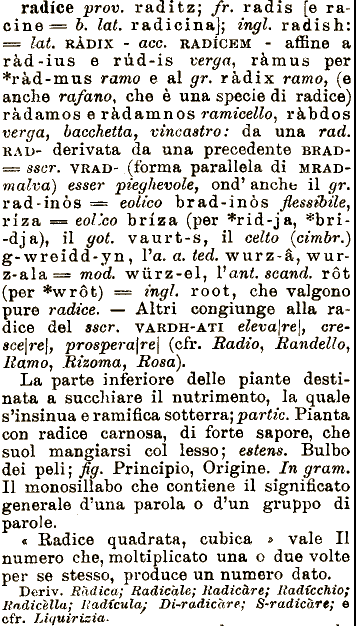 radíce prov. raditz; fr. radis [e ra-
cine = b. lat. radicina]; ingl. radish:
= lat. RÀDIX - acc. RADÍCEM - affine a
ràd-ius e rúd-is verga, ràmus per
*ràd-mus ramo e al gr. ràdix ramo, (e
anche rafano, che è una specie di radice)
ràdamos e ràdamnos ramicello, ràbdos
verga, bacchetta, vincastro: da una rad.
RAD- derivata da una precedente BRAD-
= sscr. VRAD- (forma parallela di MRAD-
malva) esser pieghevole, ond' anche il gr.
rad-inòs = eolico brad-inòs flessibile,
ríza = eolico bríza (per *rid-ja, *bri-
-dja), il got. vaurt-s, il celto (cimbr.)
g-wreidd-yn, l'a. a. ted. wurz-â, wur-
z-ala = mod. würz-el, l'ant. scand. rôt
(per *wrôt) = ingl. root, che valgono
pure radice. — Altri congiunge alla ra-
dice del sscr. VARDH-ATI eleva[re], cre-
sce[re], prospera[re] (cfr. Radio, Randello,
Ramo, Rizoma, Rosa).
La parte inferiore delle piante desti-
nata a succhiare il nutrimento, la quale
s'insinua e ramifica sotterra; partic. Pianta
con radice carnosa, di forte sapore, che
suol mangiarsi col lesso; estens. Bulbo
dei peli; fig. Principio, Origine. In gram.
Il monosillabo che contiene il significato
generale d'una parola o d'un gruppo di
parole.
« Radice quadrata, cubica » vale Il
numero che, moltiplicato una o due volte
per se stesso, produce un numero dato.
Deriv. Ràdica; Radicàle; Radicàre; Radícchio;
Radicèlla; Radícula; Di-radicàre; S-radicàre; e
cfr. Liquirizia.